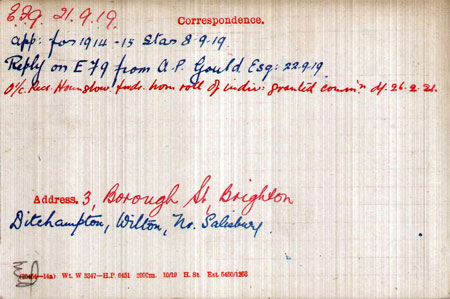 E79. 21.9.19.
Correspondence.
App: for 1914-15 Star 8-9-19
Reply on E79 from A.P. Gould Esq: 22.9.19.
O/c. Rec. Hounslow. fwds. nom roll of indiv: granted comm'n df. 26.2.21.
Address. 3, Borough St, Brighton
Ditchampton, Wilton, Nr. Salisbury.
Wt. W 3347—H.P. 6451 2000m. 10/19 H. St. Est. 5400/1263